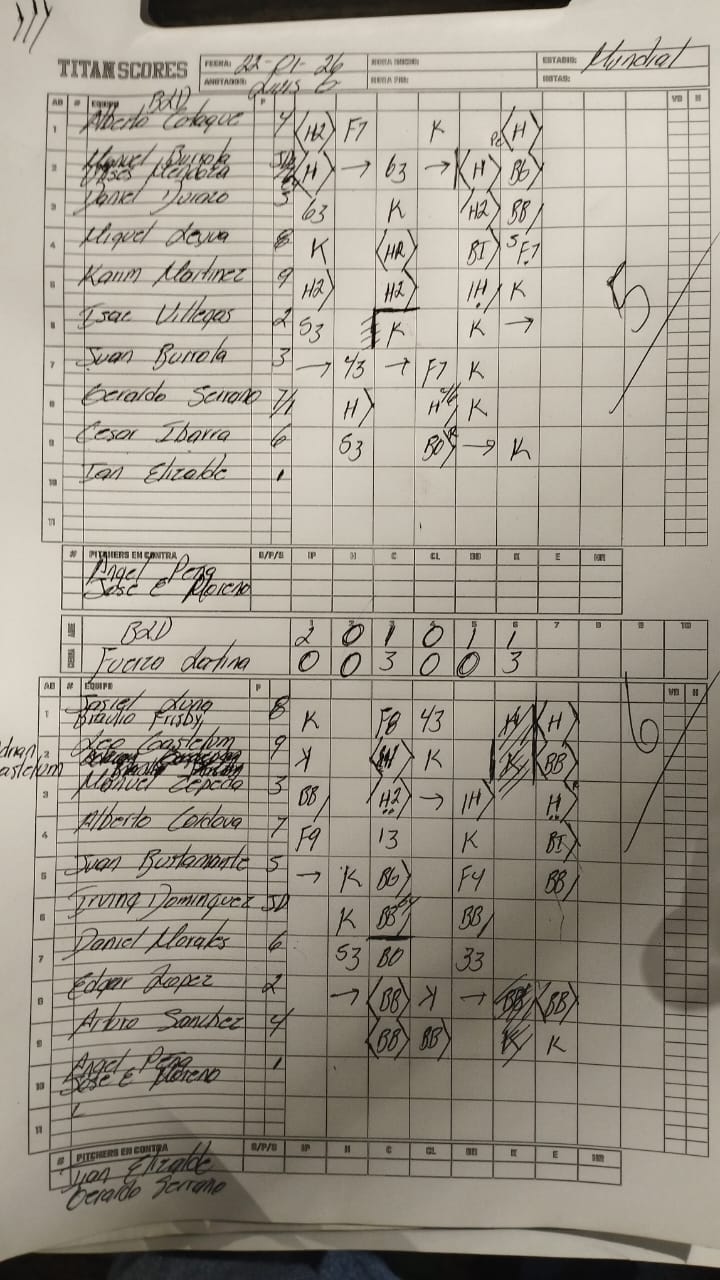 TITAN SCORES
FECHA: 22-01-26 HORA INICIO: ESTADIO: Mundial
ANOTADOR: Luis G HORA FIN: NOTAS:
AB # EQUIPO BLD P VB H
1 Alberto Cotaque 4 H2 F7 K H
2 Manuel Burrola JD H → 63 → H B6
Ulises Mendoza
3 Daniel Durazo 3 63 K H2 BB
4 Miguel Leyva 8 K HR BI SF7
5 Karim Martinez 9 H2 H2 1H K
6 Isac Villegas 2 53 K K →
7 Juan Burrola 3 → 43 → F7 K
8 Geraldo Serrano 7/1 H H K
9 Cesar Ibarra 6 53 BO → K
10 Ian Elizalde 1
11
5
# PITCHERS EN CONTRA G/P/S IP H C CL BB K E HR
Angel Peña
Jose E Moreno
1 2 3 4 5 6 7 8 9 10
BLD 2 0 1 0 1 1
Fuerza Latina 0 0 3 0 0 3
AB # EQUIPO P VB H
1 Jasiel Luna 8 K F8 43 H
Braulio Frisby
2 Leo Gastelum 9 K K BB
3 Manuel Cepeda 3 BB H2 → 1H H
4 Alberto Cordova 7 F9 13 K BI
5 Juan Bustamante 5 → K B6 F4 BB
6 Irving Dominguez JD K BB BB
7 Daniel Morales 6 53 BO 33
8 Edgar Lopez 2 → BB K → BB BB
9 Arturo Sanchez 4 BB BB K K
10 Angel Peña 1
Jose E Moreno
11
6
# PITCHERS EN CONTRA G/P/S IP H C CL BB K E HR
Ian Elizalde
Geraldo Serrano